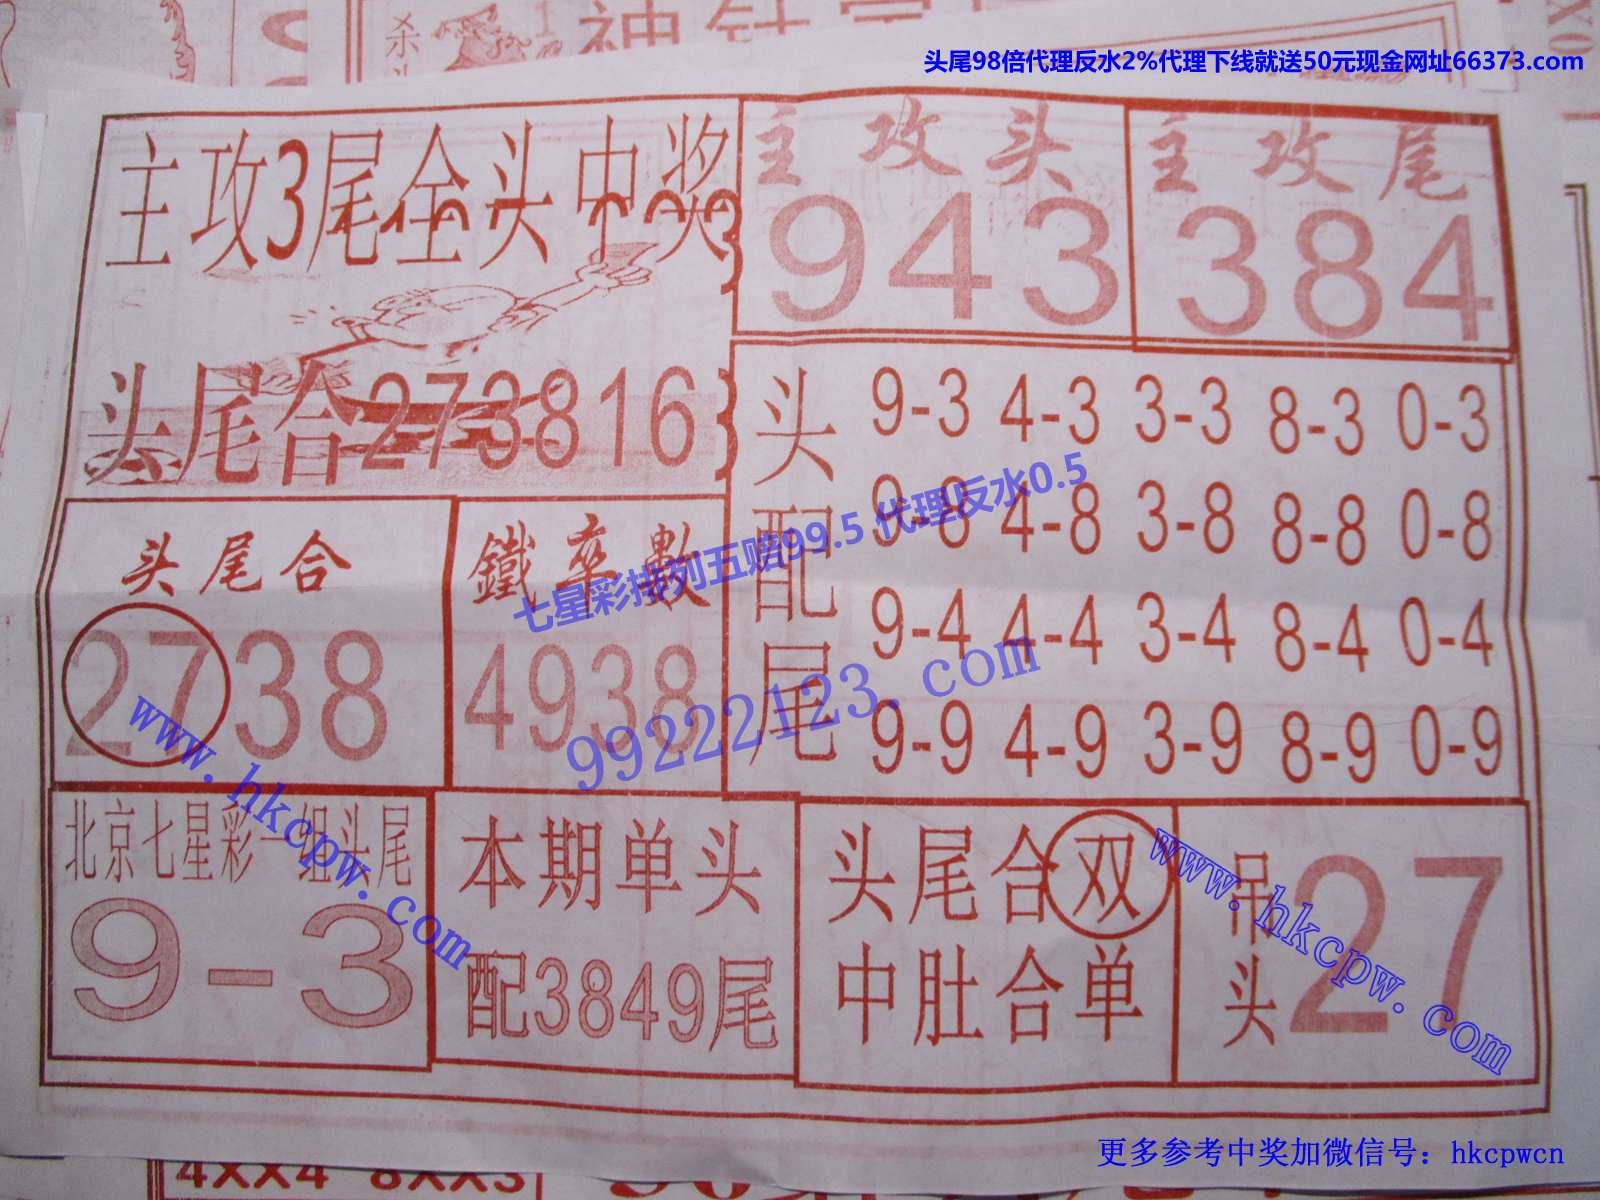 杀
头尾98倍代理反水2%代理下线就送50元现金网址66373.com
主攻3尾全头中奖
主攻头
943
主攻尾
384
头尾合273816
头配尾
9-3 4-3 3-3 8-3 0-3
9-8 4-8 3-8 8-8 0-8
9-4 4-4 3-4 8-4 0-4
9-9 4-9 3-9 8-9 0-9
头尾合
2738
鐵率數
4938
七星彩排列五赔99.5 代理反水0.5
99222123.com
www.hkcpw.com
北京七星彩一组头尾
9-3
本期单头
配3849尾
头尾合双
中肚合单
吊头
27
www.hkcpw.com
更多参考中奖加微信号：hkcpwcn
4XX4 8XX3